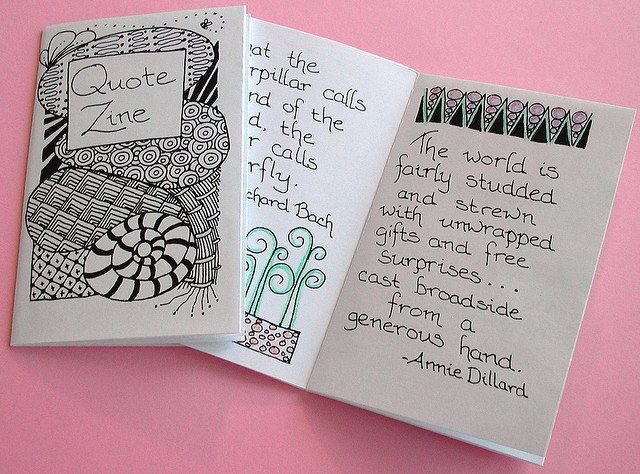 Quote
Zine
at the
rpillar calls
nd of the
d, the
r calls
rfly.
chard Bach
The world is
fairly studded
and strewn
with unwrapped
gifts and free
surprises...
cast broadside
from a
generous hand.
-Annie Dillard